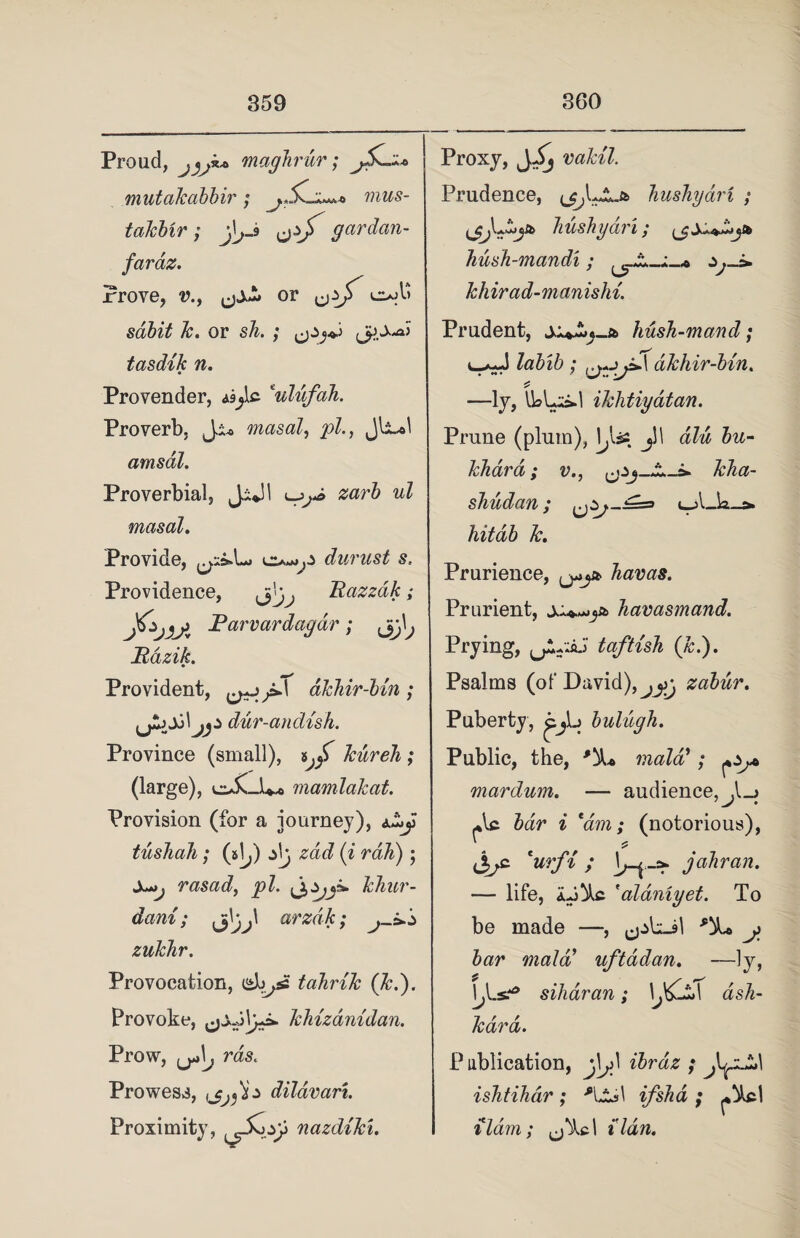 359
360
Proud, مغرور maghrúr; متکبر
mutakabbir; مستکبر mus-
takbír; گردن فراز gardan-
faráz.
Prove, v., شدن or کردن ثابت
sábit k. or sh.; نمودن تصدیق
tasdík n.
Provender, علوفه 'ulúfah.
Proverb, مثل masal, pl., امثال
amsál.
Proverbial, ضرب المثل zarb ul
masal.
Provide, درست ساختن durust s.
Providence, رزاق Razzák;
پروردگار Parvardagár; رازق
Rázik.
Provident, آخربین ákhir-bín;
دوراندیش dúr-andísh.
Province (small), کوره kúreh;
(large), مملکت mamlakat.
Provision (for a journey), توشه
túshah; زاد (راه) zád (i ráh);
رسد rasad, pl. خوردنی khur-
daní; ارزاق arzák; ذخر
zukhr.
Provocation, تحریک tahrík (k.).
Provoke, خیزانیدن khízánídan.
Prow, راس rás.
Prowess, دلاوری dilávarí.
Proximity, نزدیکی nazdíkí.
Proxy, وکیل vakíl.
Prudence, هشیاری hushyárí;
هوشیاری húshyárí; هوشمندی
húsh-mandí; خرد منشی
khirad-manishí.
Prudent, هوشمند húsh-mand;
لبیب labíb; آخربین ákhir-bín.
—ly, احتیاطا ikhtiyátan.
Prune (plum), آلو بخارا álú bu-
khárá; v., خشودن kha-
shúdan; خطاب کردن
hitáb k.
Prurience, هوس havas.
Prurient, هوسمند havasmand.
Prying, تفتیش taftísh (k.).
Psalms (of David), زبور zabúr.
Puberty, بلوغ bulúgh.
Public, the, ملاء malá'; مردم
mardum. — audience, بار
عام bár i 'ám; (notorious),
عرفی 'urfí; جهرا jahran.
— life, علانیة 'aláníyet. To
be made —, بر ملاء افتادن
bar malá' uftádan. —ly,
صحارا siháran; آشکارا ásh-
kárá.
Publication, ابراز ibráz; اشتهار
ishtihár; افشاء ifshá; اعلام
i'lám; اعلان i'lán.